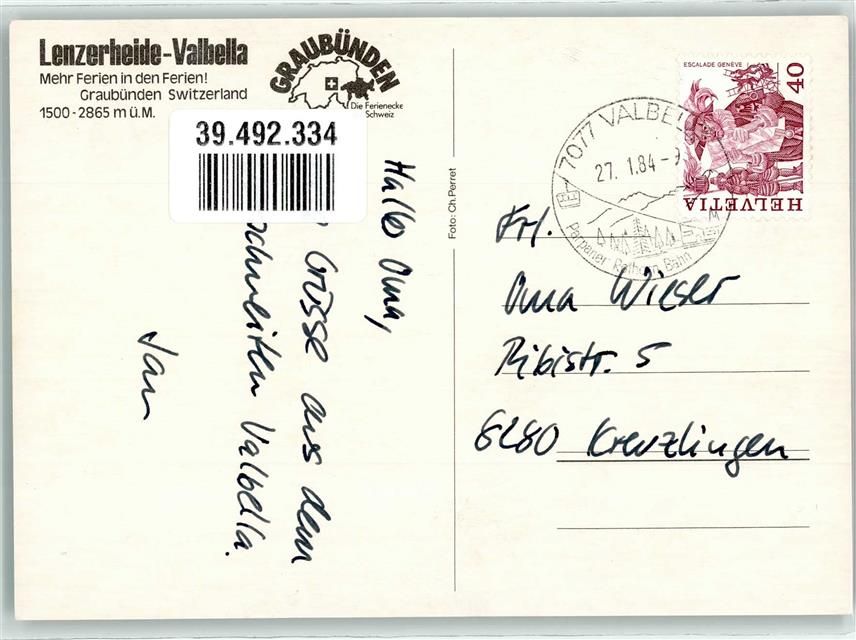 Lenzerheide-Valbella
Mehr Ferien in den Ferien!
Graubünden Switzerland
1500-2865 m ü.M.
GRAUBÜNDEN
Die Ferienecke
Schweiz
39.492.334
Hallo Oma,
Grüsse aus dem
Valbella.
Jan
Foto: Ch. Perret
7077 VALBELLA
27. 1.84
Parpaner Rothorn Bahn
ESCALADE GENÈVE
40
HELVETIA
Frl.
Oma Wieser
Ribistr. 5
8280 Kreuzlingen